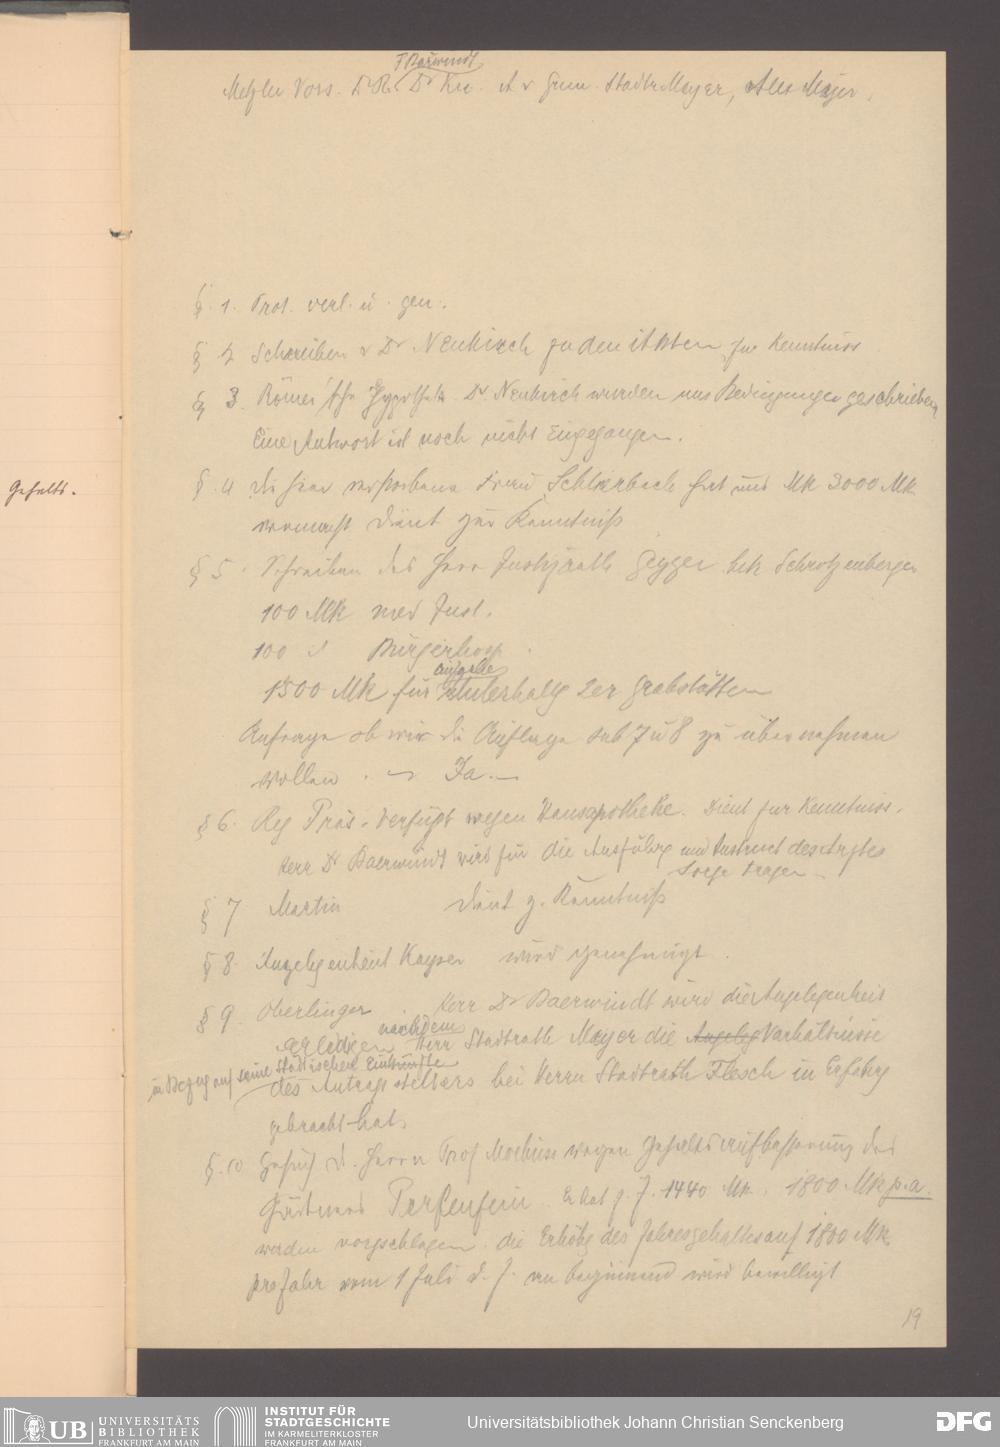 F Baerwindt
Metzler Vors. Dr R. Dr Kn. A v Stadtr Mayer, Alex Majer.
§. 1. Prot. verl. u. gen.
§ 2 Schreiben v Dr Neukirch zu den Akten zur Kenntniss
§ 3. Römer'sche Hypothek Dr. Neukirch wurden uns Bedingungen geschrieben
Eine Antwort ist noch nicht eingegangen.
Gehalts.
§. 4 die hier verstorbene Frau Schlierbach hat uns Mk 3000 Mk
vermacht dient zur Kenntniß
§ 5. Schreiben des Herr Justizrath betr. Schrotzenberger
100 Mk med Inst.
100 " Bürgerhosp.
Aufgabe
1500 Mk für Unterhaltg 2er Grabstätten
Anfrage ob wir die Auflage sub 7 u 8 zu übernehmen
wollen. – Ja. –
§ 6. Reg Präs. Verfügt wegen Hausapotheke. Dient zur Kenntniss.
Herr Dr Baerwindt wird für die Ausführg und Instruct des Arztes
Sorge tragen
§ 7 Martin dient z. Kenntniß
§ 8. Angelegenheit Kayser wird genehmigt.
§ 9. Oberlinger Herr Dr Baerwindt wird die Angelegenheit
erledigen nachdem Herr Stadtrath Mayer die Angeleg Verhältnisse
in Bezug auf seine Städtischen Einkünfte
des Antragstellers bei Herrn Stadtrath Flesch in Erfahrg
gebracht hat.
§. 10 Gesuch d. Herrn Prof Moebius wegen Gehaltsaufbesserung des
Gärtners Perßenfein. Er hat z. Z. 1440 Mk. 1800 Mk p. a.
werden vorgeschlagen. die Erhöhg des Jahresgehaltes auf 1800 Mk.
pro Jahr vom 1 Juli d. J. an beginnend wird bewilligt
19
UB UNIVERSITÄTS
BIBLIOTHEK
FRANKFURT AM MAIN
INSTITUT FÜR
STADTGESCHICHTE
IM KARMELITERKLOSTER
FRANKFURT AM MAIN
Universitätsbibliothek Johann Christian Senckenberg
DFG